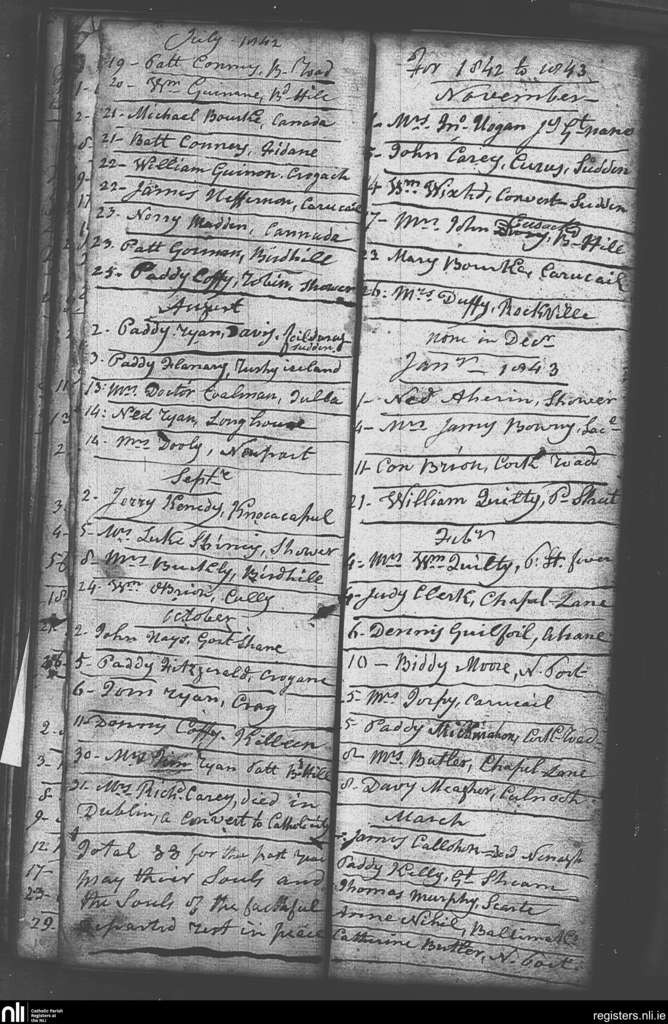 July 1842
19 - Patt Conners, B. Road
20 - Wm Guinane, Bd Hill
21 - Michael Bourke, Canada
21 - Batt Conners, Fidane
22 - William Guinon, Crogach
22 - James Heffernon, Carucail
23 - Norry Madden, Cannada
23 - Patt Gorman, Birdhill
25 - Paddy Coffy, Tobin, Shower
August
2 - Paddy Ryan, Davis,
sudden
3 - Paddy Flanary, Rushy iseland
13 - Mrs Doctor Coalman, Tulla
14 - Ned Ryan, Long house
14 - Mrs Dooly, Newport
Septr
2 - Jerry Kenedy, Knocacapul
5 - Mrs Luke Shiney, Shower
8 - Mrs Buckly, Birdhill
24 - Wm OBrien, Cully
October
2 - John Hays, Gort Shane
5 - Paddy Fitzgerald, Crogane
6 - Tom Ryan, Crag
11 - Dennis Coffy, Killeen
30 - Mrs Jim Ryan Patt Bd Hill
31 - Mrs Richd Carey, died in
Dublin, a Convert to Catholicity
Total 33 for the past year
may their Souls and
the Souls of the faithful
departed rest in peace
For 1842 to 1843
November
Mrs Jno Hogan
John Carey, Curus, Sudden
14 Wm Wixtd, Convert Sudden
17 - Mrs John Cusack, Bd Hill
23 Mary Bourke, Carucail
26 - Mrs Duffy, Rockville
none in Decr
Janry 1843
1 - Ned Aherin, Shower
4 - Mrs James Bowry,
11 Con Brion, Cork Road
21 - William Quilty, P. Street
Febry
4 - Mrs Wm Quilty, P. St. fever
4 - Judy Clerk, Chapel Lane
6 - Dennis Guilfoil, Ahane
10 - Biddy Moore, N. Port
5 - Mrs Torpy, Carucail
5 - Paddy McMahon, Cork Road
8 - Mrs Butler, Chapel Lane
8 - Davy Meagher, Culnoch
March
James Callohan Ded Nenagh
Paddy Kelly, Gt Stream
Thomas Murphy, Scarte
Anne Nihil,
Catherine Butler, N. Port
nli
Catholic Parish
Registers at
the NLI
registers.nli.ie